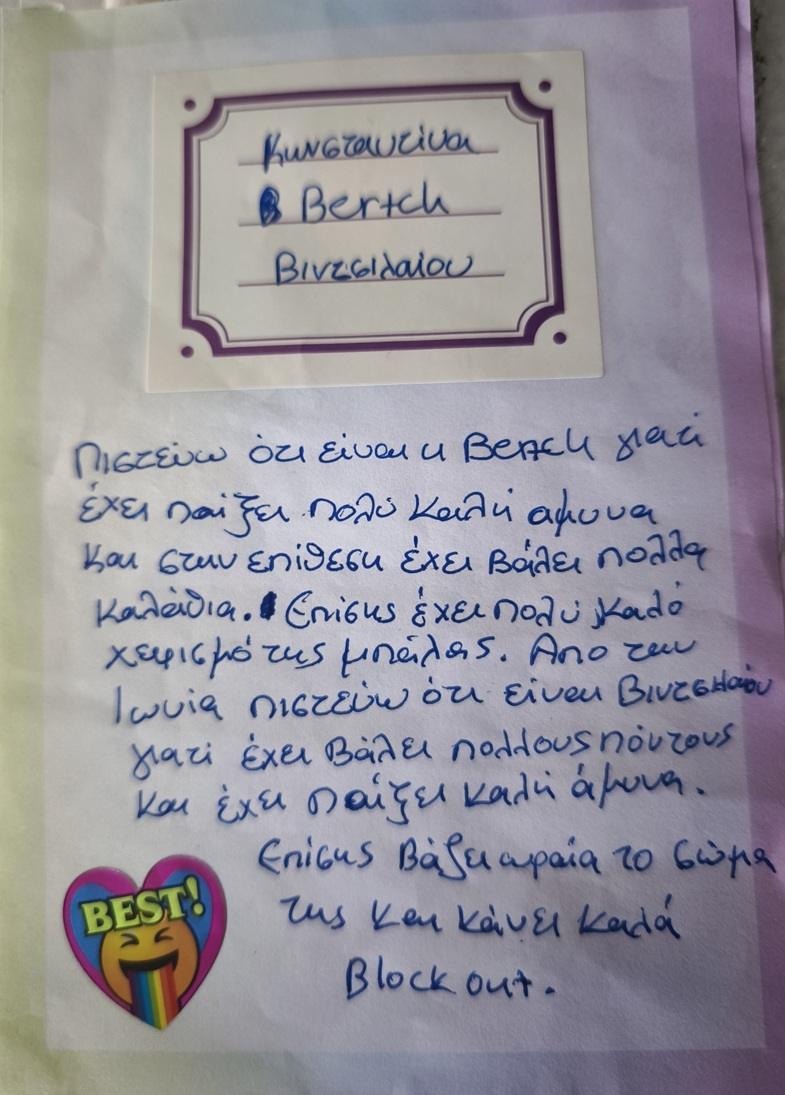 Κωνσταντίνα
Bertch
Βιντσιλαίου
Πιστεύω ότι είναι η Bertch γιατί
έχει παίξει πολύ καλή αμυνα
και στην επίθεση έχει βάλει πολλά
καλάθια. Επίσης έχει πολύ καλό
χειρισμό της μπάλας. Απο την
Ιωνία πιστεύω ότι είναι Βιντσιλαίου
γιατί έχει βάλει πολλους πόντους
και έχει παίξει καλή άμυνα.
Επίσης βάζει ωραία το σώμα
της και κάνει καλά
Block out.
BEST!